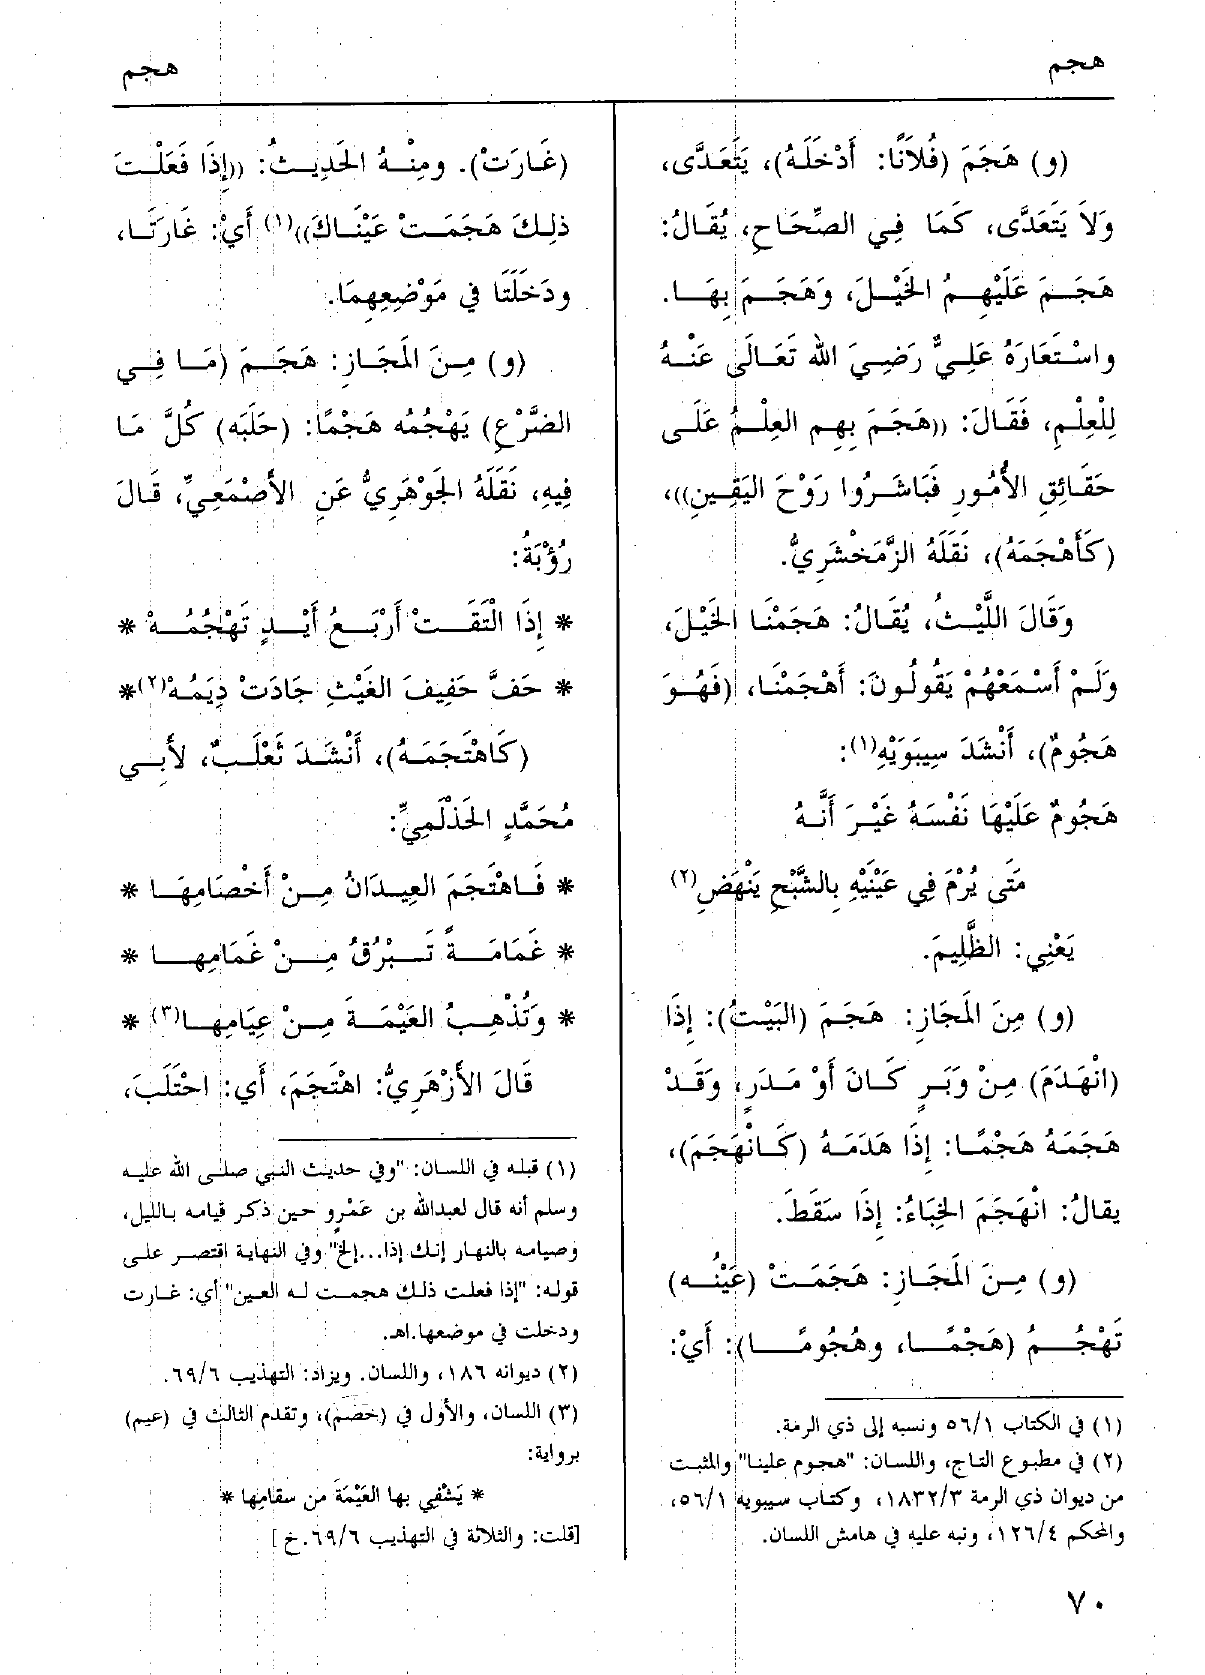 هجم
هجم
(و) هَجَمَ (فُلاَنًا: أَدْخَلَهُ)، يَتَعَدَّى،
وَلاَ يَتَعَدَّى، كَمَا فِي الصِّحَاحِ، يُقَالُ:
هَجَمَ عَلَيْهِمُ الخَيْلَ، وَهَجَمَ بِهَا.
واسْتَعَارَهُ عَلِيٌّ رَضِيَ الله تَعَالَى عَنْهُ
لِلْعِلْمِ، فَقَالَ: ((هَجَمَ بِهِم العِلْمُ عَلَى
حَقَائِقِ الأُمُورِ فَبَاشَرُوا رَوْحَ اليَقِينِ))،
(كَأَهْجَمَهُ)، نَقَلَهُ الزَّمَخْشَرِيُّ.
وَقَالَ اللَّيْثُ، يُقَالُ: هَجَمْنَا الخَيْلَ،
وَلَمْ أَسْمَعْهُمْ يَقُولُونَ: أَهْجَمْنَا، (فَهُوَ
هَجُومٌ)، أَنْشَدَ سِيبَوَيْهِ(١):
هَجُومٌ عَلَيْهَا نَفْسَهُ غَيْرَ أَنَّهُ
مَتَى يُرْمَ فِي عَيْنَيْهِ بِالشَّبْحِ يَنْهَضِ(٢)
يَعْنِي: الظَّلِيمَ.
(و) مِنَ المَجَازِ: هَجَمَ (البَيْتُ): إِذَا
(انْهَدَمَ) مِنْ وَبَرٍ كَانَ أَوْ مَدَرٍ، وَقَدْ
هَجَمَهُ هَجْمًا: إِذَا هَدَمَهُ (كَانْهَجَمَ)،
يقالُ: انْهَجَمَ الخِبَاءُ: إِذَا سَقَطَ.
(و) مِنَ المَجَازِ: هَجَمَتْ (عَيْنُه)
تَهْجُمُ (هَجْمًا، وهُجُومًا): أَيْ:
(١) في الكتاب ٥٦/١ ونسبه إلى ذي الرمة.
(٢) في مطبوع التاج، واللسان: "هجوم علينا" والمثبت
من ديوان ذي الرمة ١٨٣٢/٣، وكتاب سيبويه ٥٦/١،
والمحكم ١٢٦/٤، ونبه عليه في هامش اللسان.
(غَارَتْ). ومِنْهُ الحَدِيثُ: ((إِذَا فَعَلْتَ
ذلِكَ هَجَمَتْ عَيْنَاكَ))(١) أَيْ: غَارَتَا،
ودَخَلَتَا في مَوْضِعِهِمَا.
(و) مِنَ المَجَازِ: هَجَمَ (مَا فِي
الضَّرْعِ) يَهْجُمُه هَجْمًا: (حَلَبَه) كُلَّ مَا
فِيهِ، نَقَلَهُ الجَوْهَرِيُّ عَنِ الأَصْمَعِيِّ، قَالَ
رُؤْبَةُ:
* إِذَا الْتَقَتْ أَرْبَعُ أَيْدٍ تَهْجُمُهْ *
* حَفَّ حَفِيفَ الغَيْثِ جَادَتْ دِيَمُهْ(٢)*
(كَاهْتَجَمَهُ)، أَنْشَدَ ثَعْلَبٌ، لأَبِي
مُحَمَّدٍ الحَذْلَمِيِّ:
* فَاهْتَجَمَ العِيدَانُ مِنْ أَخْصَامِهَا *
* غَمَامَةً تَبْرُقُ مِنْ غَمَامِها *
* وَتُذْهِبُ العَيْمَةَ مِنْ عِيَامِها(٣) *
قَالَ الأَزْهَرِيُّ: اهْتَجَمَ، أَي: احْتَلَبَ،
(١) قبله في اللسان: "وفي حديث النبي صلى الله عليه
وسلم أنه قال لعبدالله بن عَمْرٍو حين ذكر قيامه بالليل،
وصيامه بالنهار إنك إذا...إلخ" وفي النهاية اقتصر على
قوله: "إذا فعلت ذلك هجمت له العين" أي: غارت
ودخلت في موضعها.اهـ.
(٢) ديوانه ١٨٦، واللسان. ويزاد: التهذيب ٦٩/٦.
(٣) اللسان، والأول في (خصم)، وتقدم الثالث في (عيم)
برواية:
* يَشْفِي بها العَيْمَةَ من سقامِها *
[قلت: والثلاثة في التهذيب ٦٩/٦.خ]
٧٠